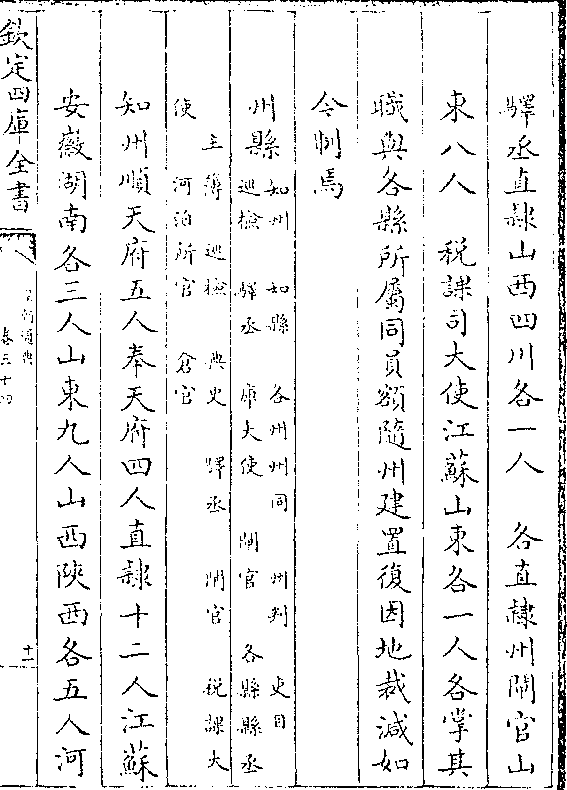 驛丞直隸山西四川各一人　各直隸州閘官山
東八人　税課司大使江蘇山東各一人各掌其
職與各縣所屬同員額隨州建置復因地裁減如
今制焉
州縣
知州　知縣　各州州同　州判　吏目
巡檢　驛丞　庫大使　閘官　各縣縣丞
主簿　巡檢　典史　驛丞　閘官　税課大
使　河泊所官　倉官
知州順天府五人奉天府四人直隸十二人江蘇
安徽湖南各三人山東九人山西陜西各五人河
欽定四庫全書
皇朝通典
卷三十四
十一